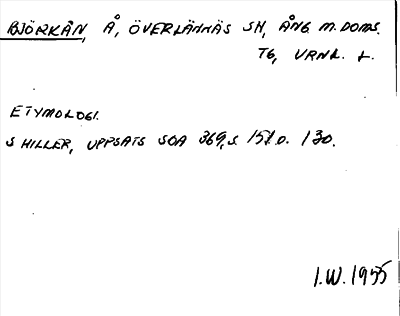 BJÖRKÅN, Å, ÖVERLÄNNÄS SN, ÅNG. M. DOMS.
TG, VRNL. L.
ETYMOLOGI.
S HILLER, UPPSATS SOA 369, S. 151 O. 130.
I.W. 1955